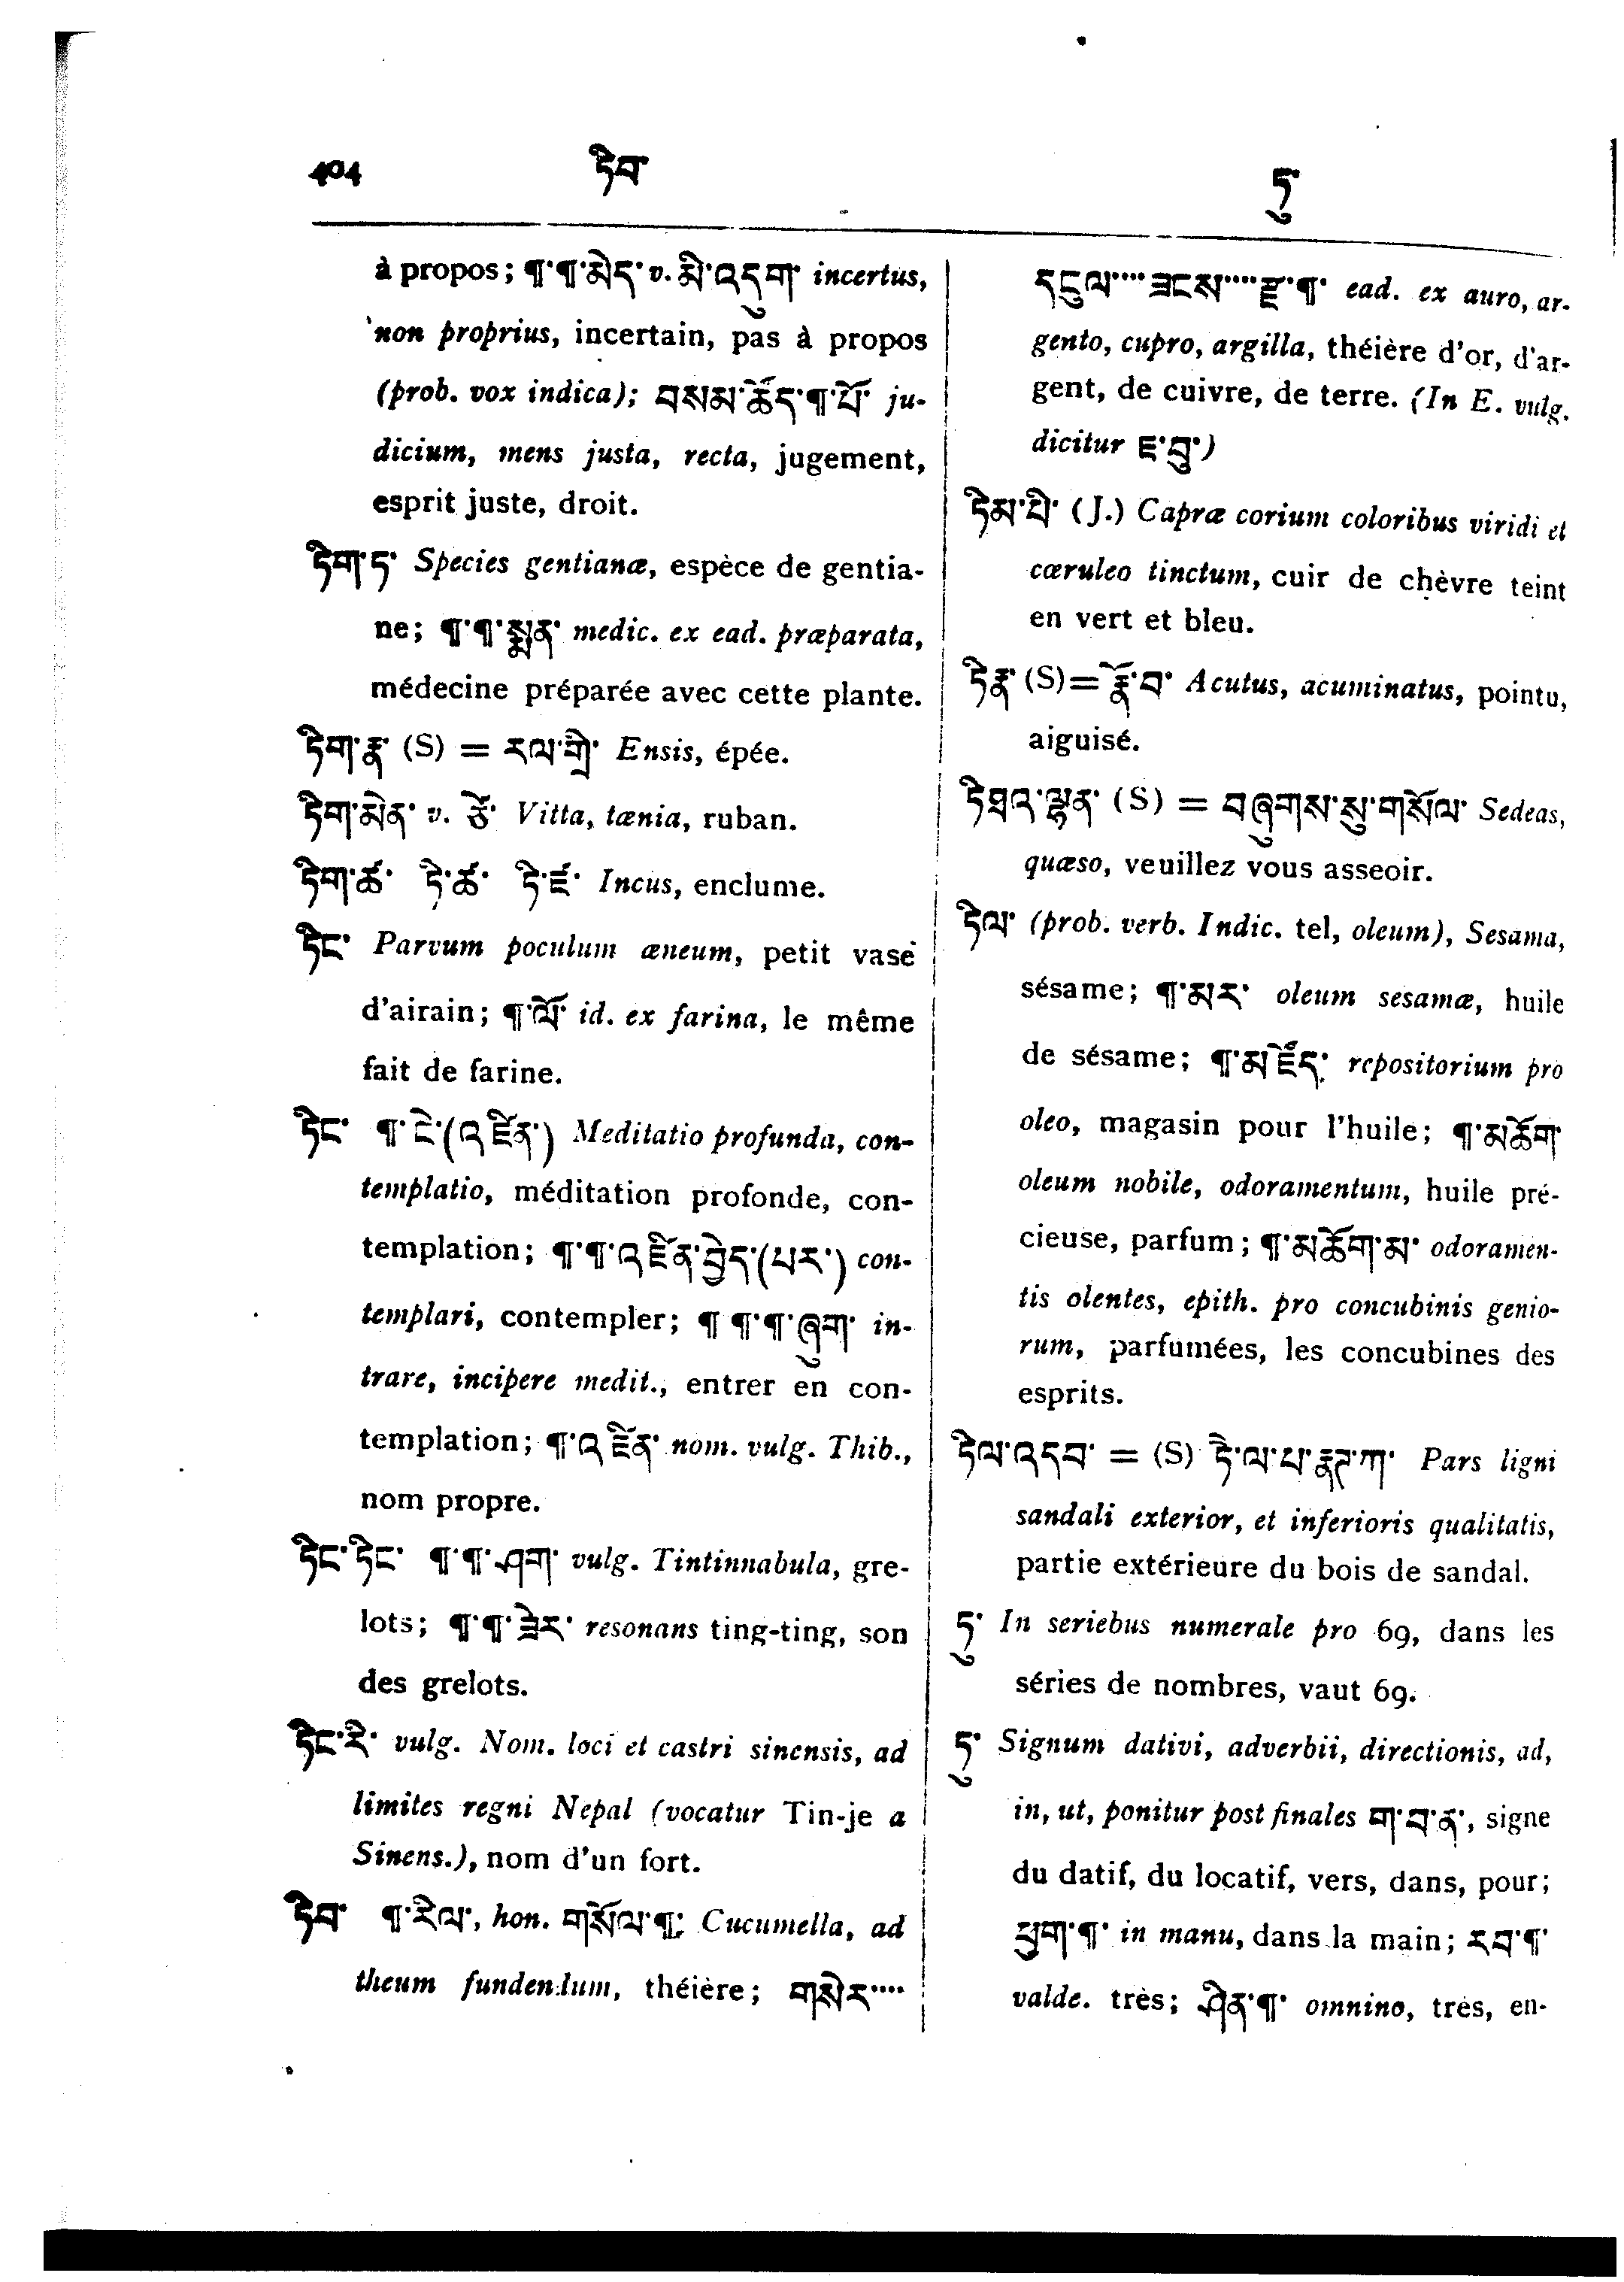 404 ཏིབ་ ཏུ་
à propos; ¶་¶་མེད་ v. མི་འདུག་ incertus,
non proprius, incertain, pas à propos
(prob. vox indica); བསམ་ཚོད་¶་པོ་ ju-
dicium, mens justa, recta, jugement,
esprit juste, droit.
ཏིག་ཏ་ Species gentianæ, espèce de gentia-
ne; ¶་¶་སྨན་ medic. ex ead. præparata,
médecine préparée avec cette plante.
ཏིག་རྣ་ (S) = རལ་གྲི་ Ensis, épée.
ཏིག་མེན་ v. ཅོ་ Vitta, tænia, ruban.
ཏིག་ཚ་ ཏེ་ཚ་ ཏེ་ཛ་ Incus, enclume.
ཏིང་ Parvum poculum æneum, petit vase
d'airain; ¶་ལོ་ id. ex farina, le même
fait de farine.
ཏིང་ ¶་ངེ་(འཛིན་) Meditatio profunda, con-
templatio, méditation profonde, con-
templation; ¶་¶་འཛིན་བྱེད་(པར་) con-
templari, contempler; ¶ ¶་¶་ཞུག་ in-
trare, incipere medit., entrer en con-
templation; ¶་འཛིན་ nom. vulg. Thib.,
nom propre.
ཏིང་ཏིང་ ¶་¶་ཤག་ vulg. Tintinnabula, gre-
lots; ¶་¶་ཟེར་ resonans ting-ting, son
des grelots.
ཏིང་རི་ vulg. Nom. loci et castri sinensis, ad
limites regni Nepal (vocatur Tin-je a
Sinens.), nom d'un fort.
ཏིབ་ ¶་རིལ་, hon. གསོལ་¶; Cucumella, ad
theum fundendum, théière; གསེར་····
དངུལ་····ཟངས་····རྫ་¶་ ead. ex auro, ar-
gento, cupro, argilla, théière d'or, d'ar-
gent, de cuivre, de terre. (In E. vulg.
dicitur ཇ་བུ་)
ཏིམ་པི་ (J.) Capræ corium coloribus viridi et
cæruleo tinctum, cuir de chèvre teint
en vert et bleu.
ཏིརྣ་ (S)= རྣོ་བ་ Acutus, acuminatus, pointu,
aiguisé.
ཏིཥྛའ་ལྷན་ (S) = བཞུགས་སུ་གསོལ་ Sedeas,
quæso, veuillez vous asseoir.
ཏིལ་ (prob. verb. Indic. tel, oleum), Sesama,
sésame; ¶་མར་ oleum sesamæ, huile
de sésame; ¶་མཛོད་ repositorium pro
oleo, magasin pour l'huile; ¶་མཆོག་
oleum nobile, odoramentum, huile pré-
cieuse, parfum; ¶་མཆོག་མ་ odoramen-
tis olentes, epith. pro concubinis genio-
rum, parfumées, les concubines des
esprits.
ཏིལ་འདབ་ = (S) ཏེ་ལ་པ་རྣཎི་ཀ་ Pars ligni
sandali exterior, et inferioris qualitatis,
partie extérieure du bois de sandal.
ཏུ་ In seriebus numerale pro 69, dans les
séries de nombres, vaut 69.
ཏུ་ Signum dativi, adverbii, directionis, ad,
in, ut, ponitur post finales ག་བ་ན་, signe
du datif, du locatif, vers, dans, pour;
ཕྱག་¶་ in manu, dans la main; རབ་¶་
valde. très; ཤིན་¶་ omnino, très, en-